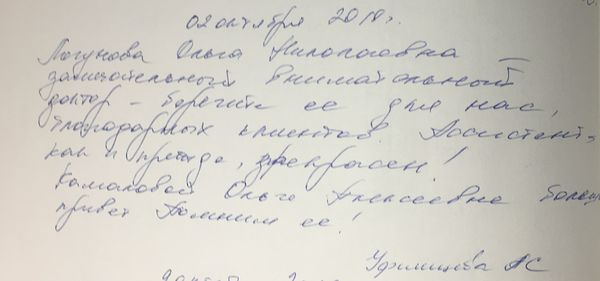 02 октября 2018 г.
Логунова Ольга Николаевна –
замечательный внимательный
доктор – берегите ее для нас,
благодарных клиентов. Ассистент,
как и прежде, прекрасен!
Ольге Алексеевне больш
привет Помним ее!